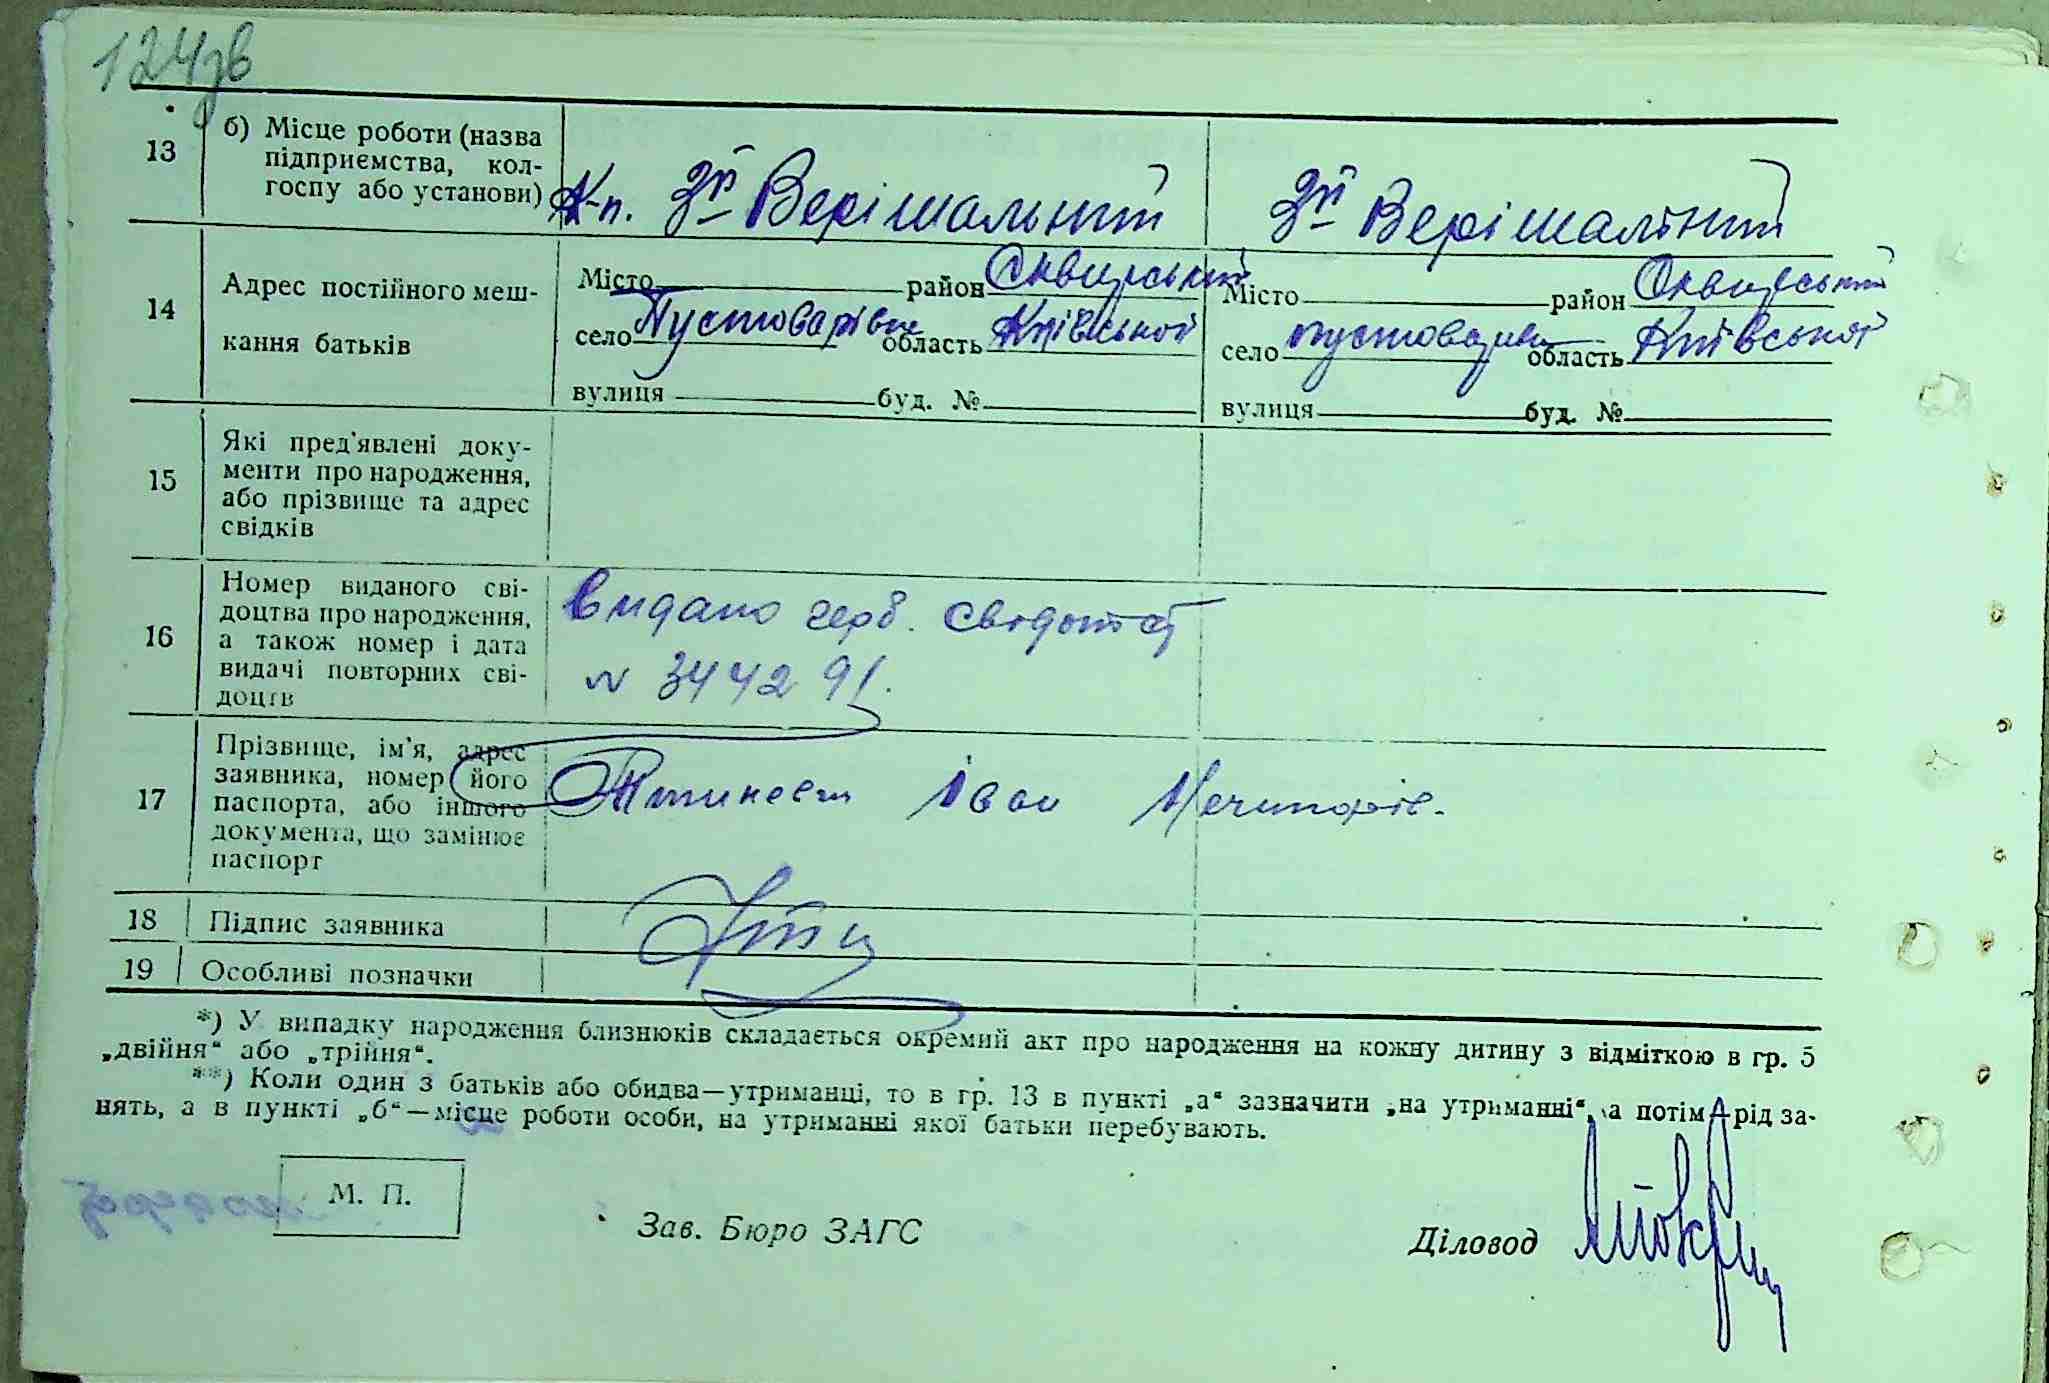 124зв
13 б) Місце роботи (назва
підприємства, кол-
госпу або установи)
К-п. 3й Верішальний 3й Верішальний
14 Адрес постійного меш-
кання батьків
Місто район Сквирський Місто район Сквирський
село Пустоварівка область Київської село Пустоварівка область Київської
вулиця буд. № вулиця буд. №
15 Які пред'явлені доку-
менти про народження,
або прізвище та адрес
свідків
16 Номер виданого сві-
доцтва про народження,
а також номер і дата
видачі повторних сві-
доцтв
Видано герб.
№ 344291.
17 Прізвище, ім'я, адрес
заявника, номер його
паспорта, або іншого
документа, що замінює
паспорт
Іван
18 Підпис заявника
19 Особливі позначки
*) У випадку народження близнюків складається окремий акт про народження на кожну дитину з відміткою в гр. 5
„двійня“ або „трійня“.
**) Коли один з батьків або обидва—утриманці, то в гр. 13 в пункті „а“ зазначити „на утриманні“, а потім рід за-
нять, а в пункті „б“—місце роботи особи, на утриманні якої батьки перебувають.
М. П.
Зав. Бюро ЗАГС Діловод